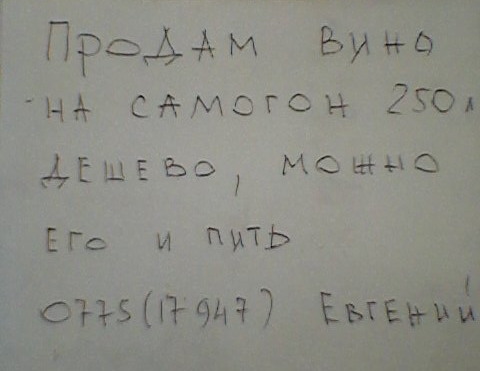 Продам вино
на самогон 250л
дешево, можно
его и пить
0775(17947) Евгений